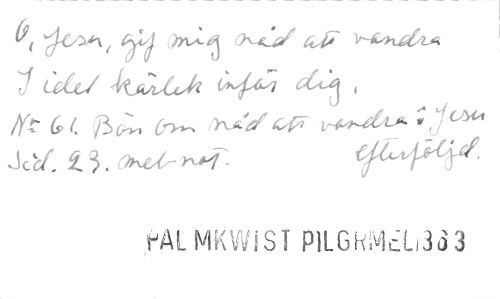 O, Jesu, gif mig nåd att vandra
I idel kärlek inför dig.
No 61. Bön om nåd att vandra i Jesu
Sid. 23. met-not. efterföljd.
PALMKWIST PILGRMEL 1363